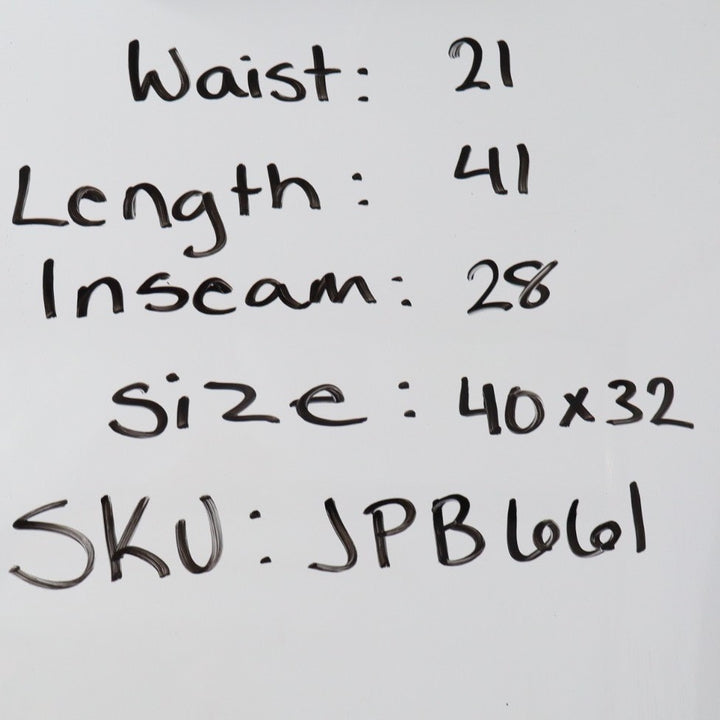 Waist: 21
Length: 41
Inseam: 28
Size: 40x32
SKU: JPB661